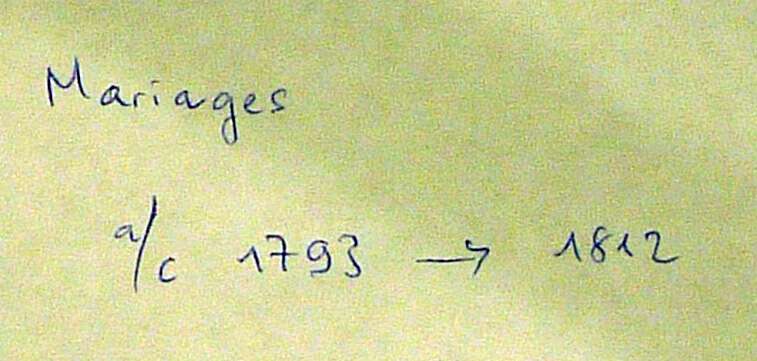 Mariages
a/c 1793 → 1812